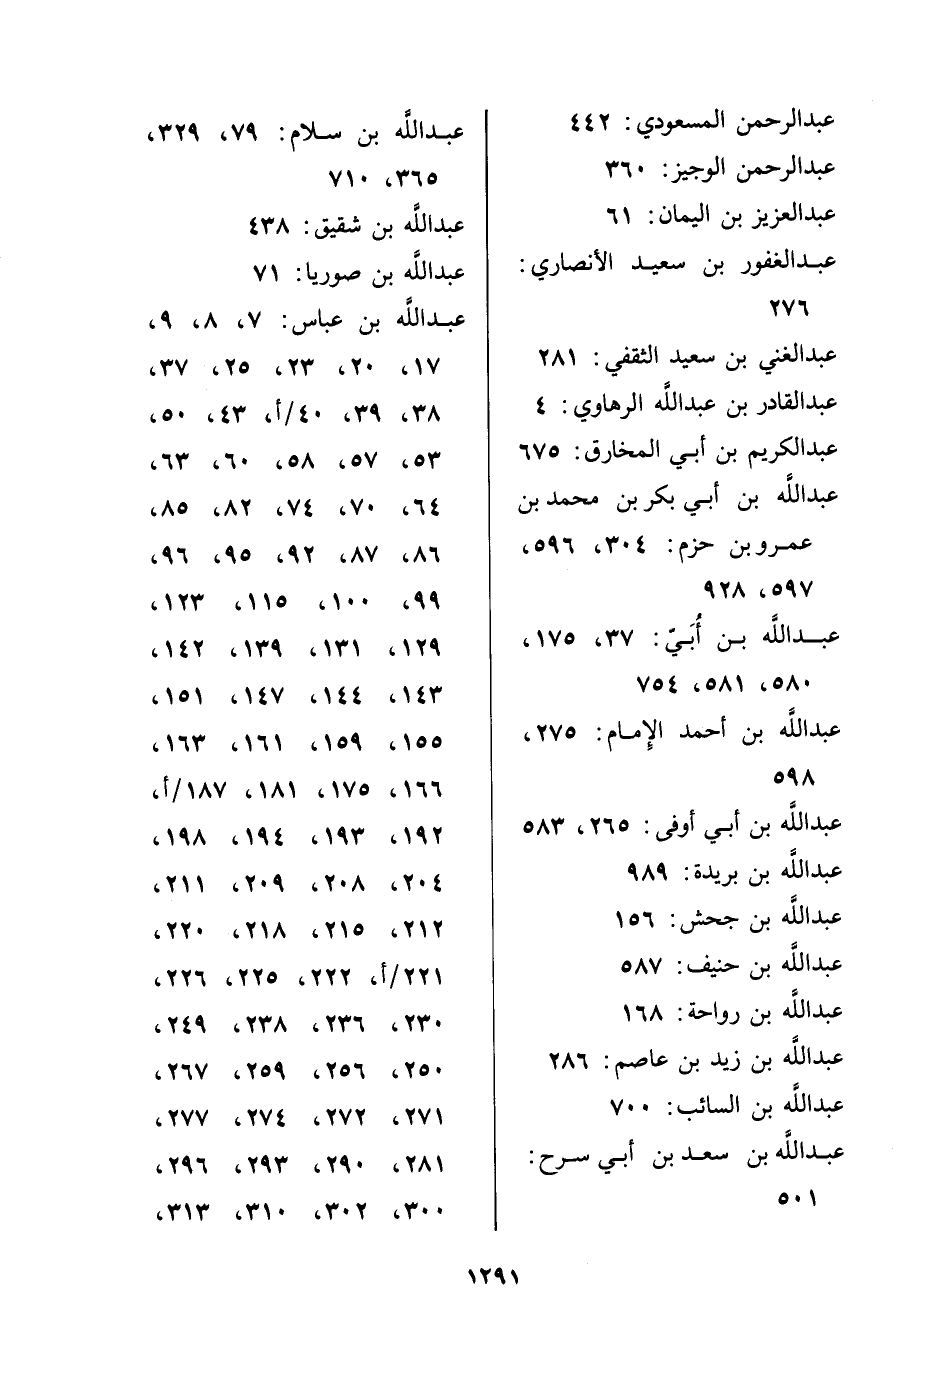 عبدالرحمن المسعودي: ٤٤٢
عبدالرحمن الوجيز: ٣٦٠
عبدالعزيز بن اليمان: ٦١
عبدالغفور بن سعيد الأنصاري:
٢٧٦
عبدالغني بن سعيد الثقفي: ٢٨١
عبدالقادر بن عبداللَّه الرهاوي: ٤
عبدالكريم بن أبي المخارق: ٦٧٥
عبداللَّه بن أبي بكر بن محمد بن
عمرو بن حزم: ٣٠٤، ٥٩٦،
٥٩٧، ٩٢٨
عبداللَّه بن أُبَيّ: ٣٧، ١٧٥،
٥٨٠، ٥٨١، ٧٥٤
عبداللَّه بن أحمد الإمام: ٢٧٥،
٥٩٨
عبداللَّه بن أبي أوفى: ٢٦٥، ٥٨٣
عبداللَّه بن بريدة: ٩٨٩
عبداللَّه بن جحش: ١٥٦
عبداللَّه بن حنيف: ٥٨٧
عبداللَّه بن رواحة: ١٦٨
عبداللَّه بن زيد بن عاصم: ٢٨٦
عبداللَّه بن السائب: ٧٠٠
عبداللَّه بن سعد بن أبي سرح:
٥٠١
عبداللَّه بن سلام: ٧٩، ٣٢٩،
٣٦٥، ٧١٠
عبداللَّه بن شقيق: ٤٣٨
عبداللَّه بن صوريا: ٧١
عبداللَّه بن عباس: ٧، ٨، ٩،
١٧، ٢٠، ٢٣، ٢٥، ٣٧،
٣٨، ٣٩، ٤٠/أ، ٤٣، ٥٠،
٥٣، ٥٧، ٥٨، ٦٠، ٦٣،
٦٤، ٧٠، ٧٤، ٨٢، ٨٥،
٨٦، ٨٧، ٩٢، ٩٥، ٩٦،
٩٩، ١٠٠، ١١٥، ١٢٣،
١٢٩، ١٣١، ١٣٩، ١٤٢،
١٤٣، ١٤٤، ١٤٧، ١٥١،
١٥٥، ١٥٩، ١٦١، ١٦٣،
١٦٦، ١٧٥، ١٨١، ١٨٧/أ،
١٩٢، ١٩٣، ١٩٤، ١٩٨،
٢٠٤، ٢٠٨، ٢٠٩، ٢١١،
٢١٢، ٢١٥، ٢١٨، ٢٢٠،
٢٢١/أ، ٢٢٢، ٢٢٥، ٢٢٦،
٢٣٠، ٢٣٦، ٢٣٨، ٢٤٩،
٢٥٠، ٢٥٦، ٢٥٩، ٢٦٧،
٢٧١، ٢٧٢، ٢٧٤، ٢٧٧،
٢٨١، ٢٩٠، ٢٩٣، ٢٩٦،
٣٠٠، ٣٠٢، ٣١٠، ٣١٣،
١٢٩١